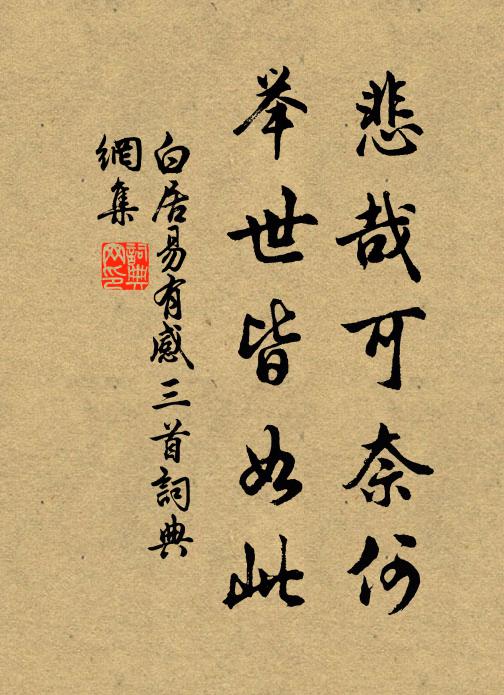 悲哉可奈何
举世皆如此
白居易有感三首詞典
網集
詞典
网印